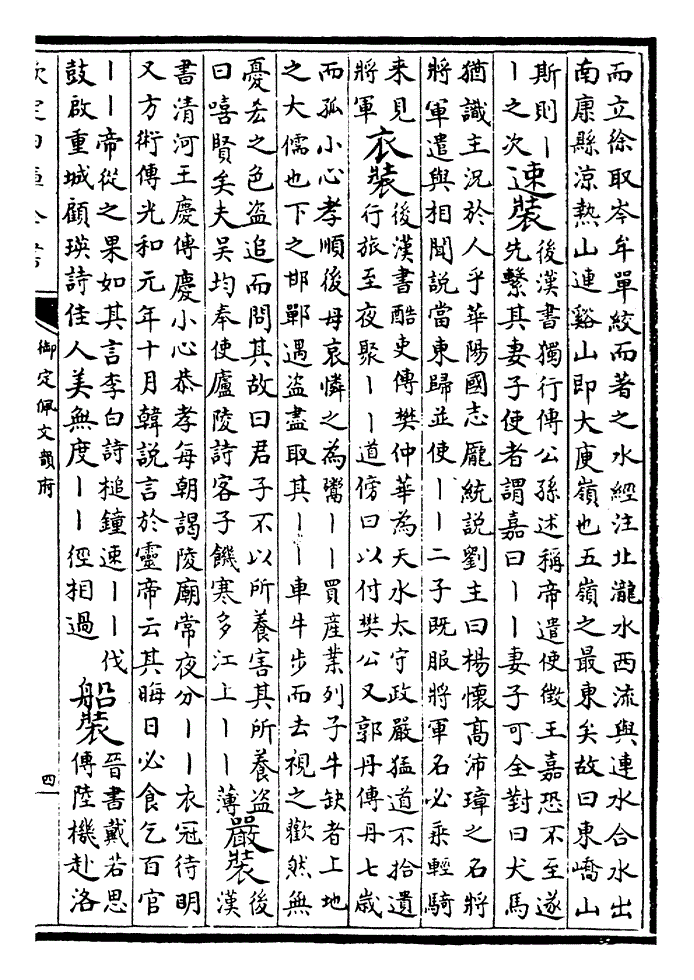 而立徐取岑牟單絞而著之水經注北瀧水西流與連水合水出
南康縣涼熱山連谿山即大庾嶺也五嶺之最東矣故曰東嶠山
斯則丨
丨之次
速裝
後漢書獨行傳公孫述稱帝遣使徵王嘉恐不至遂
先繫其妻子使者謂嘉曰丨丨妻子可全對曰犬馬
猶識主況於人乎華陽國志龐統說劉主曰楊懷高沛璋之名將
將軍遣與相聞說當東歸並使丨丨二子既服將軍名必乘輕騎
來見
將軍
衣裝
後漢書酷吏傳樊仲華為天水太守政嚴猛道不拾遺
行旅至夜聚丨丨道傍曰以付樊公又郭丹傳丹七歲
而孤小心孝順後母哀憐之為鬻丨丨買産業列子牛缺者上地
之大儒也下之邯鄲遇盜盡取其丨丨車牛步而去視之歡然無
憂吝之色盜追而問其故曰君子不以所養害其所養盜
曰嘻賢矣夫吳均奉使廬陵詩客子饑寒多江上丨丨薄
嚴裝
後
漢
書清河王慶傳慶小心恭孝每朝謁陵廟常夜分丨丨衣冠待明
又方術傳光和元年十月韓說言於靈帝云其晦日必食乞百官
丨丨帝從之果如其言李白詩槌鐘速丨丨伐
鼓啟重城顧瑛詩佳人美無度丨丨徑相過
船裝
晉書戴若思
傳陸機赴洛
欽定四庫全書
御定佩文韻府
四